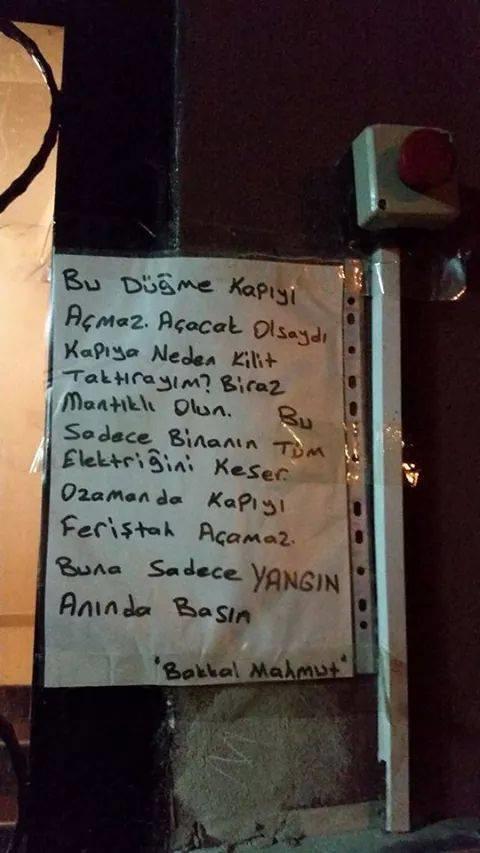 Bu Düğme Kapıyı
Açmaz. Açacak Olsaydı
Kapıya Neden Kilit
Taktırayım? Biraz
Mantıklı Olun. Bu
Sadece Binanın Tüm
Elektriğini Keser.
Ozaman da Kapıyı
Feriştah Açamaz.
Buna Sadece YANGIN
Anında Basın
"Bakkal Mahmut"